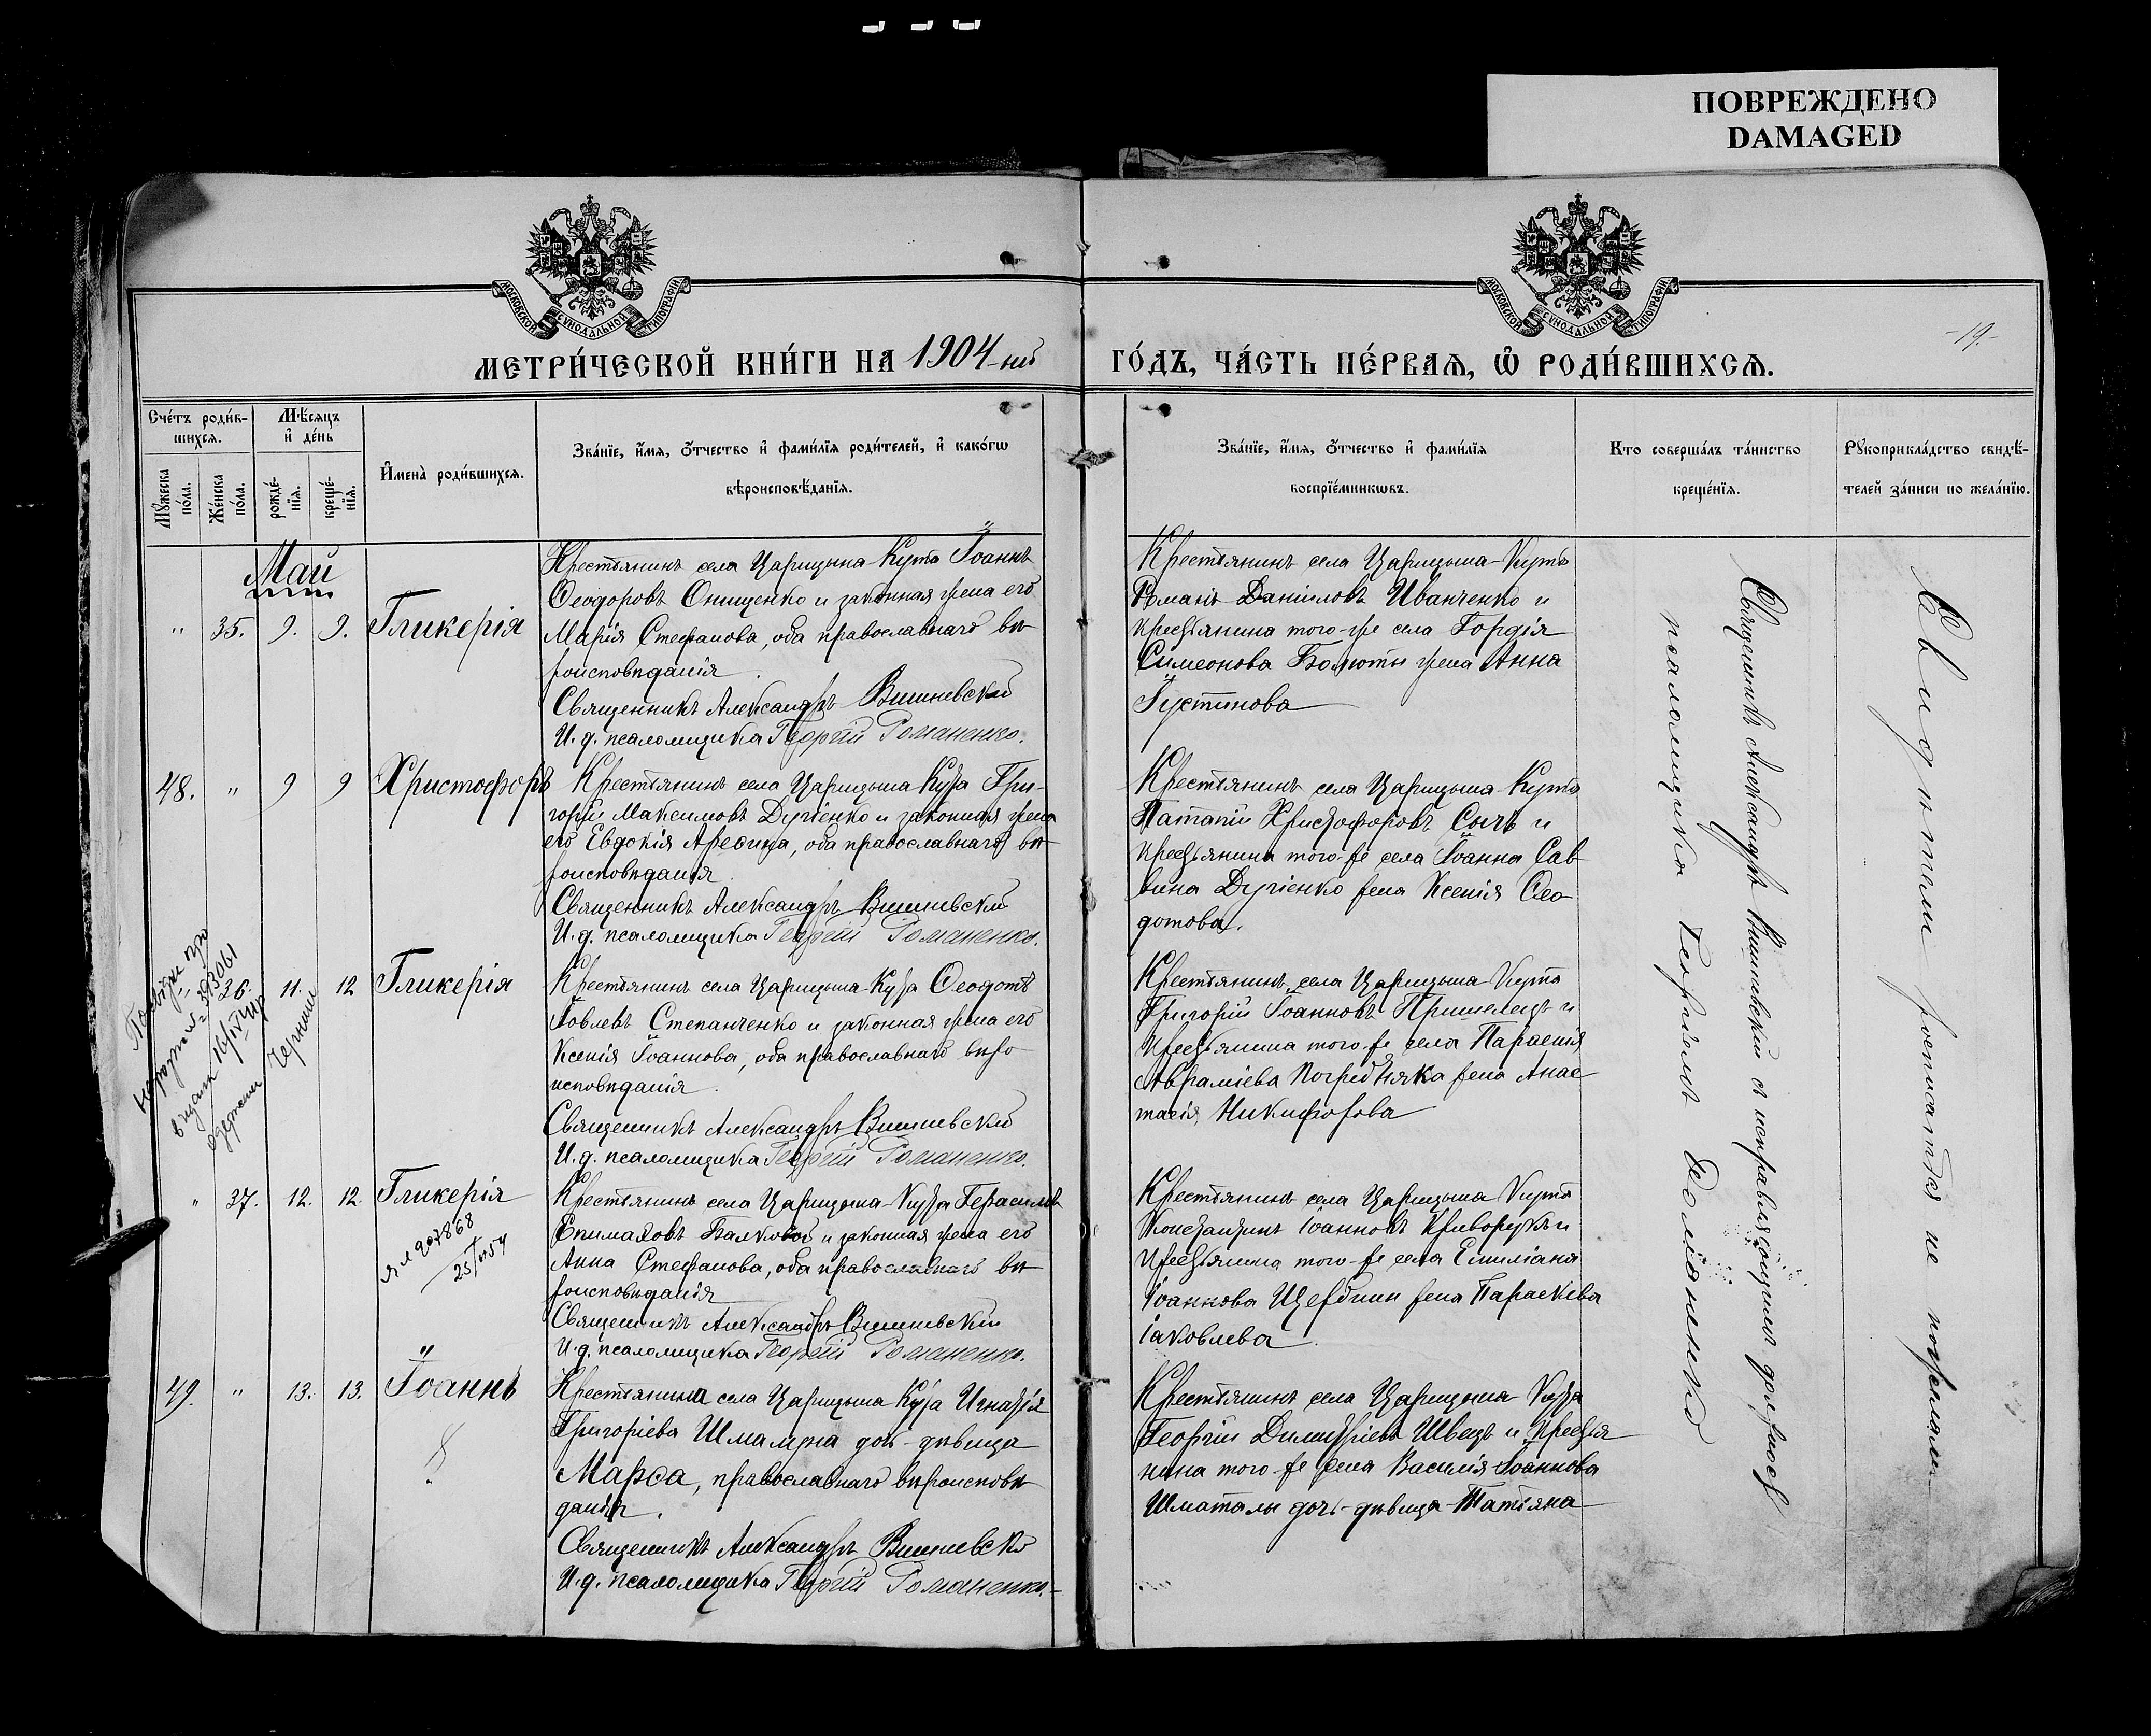 ПОВРЕЖДЕНО
DAMAGED
МОСКОВСКОЙ СѴНОДАЛЬНОЙ ТИПОГРАФІИ
МОСКОВСКОЙ СѴНОДАЛЬНОЙ ТИПОГРАФІИ
-19.-
МЕТРИ́ЧЕСКОЙ КНИ́ГИ НА 1904-ий ГО́ДЪ, ЧА́СТЬ ПЕ́РВАЯ, Ѿ РОДИ́ВШИХСЯ.
Сче́тъ роди́в-
шихся.
Мꙋ́жеска по́ла.
Же́нска по́ла.
Мѣ́сяцъ
и҆ де́нь
рожде́-
нїя.
креще́-
нїя.
И҆мена̀ роди́вшихся.
Зва́нїе, и҆́мя, ѻ҆́тчество и҆ фами́лїя роди́телей, и҆ како́гѡ
вѣроисповѣ́данїя.
Зва́нїе, и҆́мя, ѻ҆́тчество и҆ фами́лїя
воспрїе́мникѡвъ.
Кто соверша́лъ та́инство
креще́нїя.
Рꙋкоприкла́дство свидѣ́-
телей за́писи по жела́нїю.
Май
" 35. 9. 9. Гликерія
Крестьянинъ села Царицына-Кута Іоаннъ
Ѳеодоровъ Онищенко и законная жена его
Марія Стефанова, оба православнаго вѣ
роисповѣданія.
Священникъ Александръ Вишневскій
И. д. псаломщика Георгій Романенко.
Крестьянинъ села Царицына-Кута
Романъ Даніиловъ Иванченко и
крестьянина того-же села Гордія
Симеонова жена Анна
Іустинова
48. " 9 9 Христофоръ
Крестьянинъ села Царицына Кута Гри-
горій Максимовъ Дугіенко и законная жена
его Евдокія Арефина, оба православнаго вѣ
роисповѣданія.
Священникъ Александръ Вишневскій
И. д. псаломщика Георгій Романенко.
Крестьянинъ села Царицына-Кута
Патапій Христофоровъ Сычъ и
крестьянина того-же села Іоанна Сав
вина Дугіенко жена Ксенія Ѳео
дотова.
" 36. 11. 12 Гликерія
Крестьянинъ села Царицына-Кута Ѳеодотъ
Іовлевъ Степанченко и законная жена его
Ксенія Іоаннова, оба православнаго вѣро
исповѣданія.
Священникъ Александръ Вишневскій
И. д. псаломщика Георгій Романенко.
Крестьянинъ села Царицына Кута
Григорій Іоанновъ Пришелецъ и
крестьянина того-же села
Авраміева Погребняка жена Анас
тасія Никифорова
" 37. 12. 12. Гликерія
907868
Крестьянинъ села Царицына-Кута Герасимъ
Епимаховъ Балковой и законная жена его
Анна Стефанова, оба православнаго вѣ
роисповѣданія
Священникъ Александръ Вишневскій
И. д. псаломщика Георгій Романенко.
Крестьянинъ села Царицына Кута
Константинъ Іоанновъ Криворучки
крестьянина того-же села Емиліана
Іоаннова Щербини жена Параскева
Іаковлева.
49. " 13. 13. Іоаннъ
Крестьянина села Царицына Кута Игнатія
Григоріева дочь-дѣвица
Марѳа, православнаго вѣроисповѣ
данія.
Священникъ Александръ Вишневскій
И. д. псаломщика Георгій Романенко.-
Крестьянинъ села Царицына Кута
Георгій Димитріевъ Швецъ и крестья
нина того-же села Василія Іоаннова
Шматалы дочь-дѣвица Татьяна
Священникъ Александръ Вишневскій съ исправляющимъ должность
псаломщика Георгіемъ Романенко
Свидѣтели росписаться не пожелали